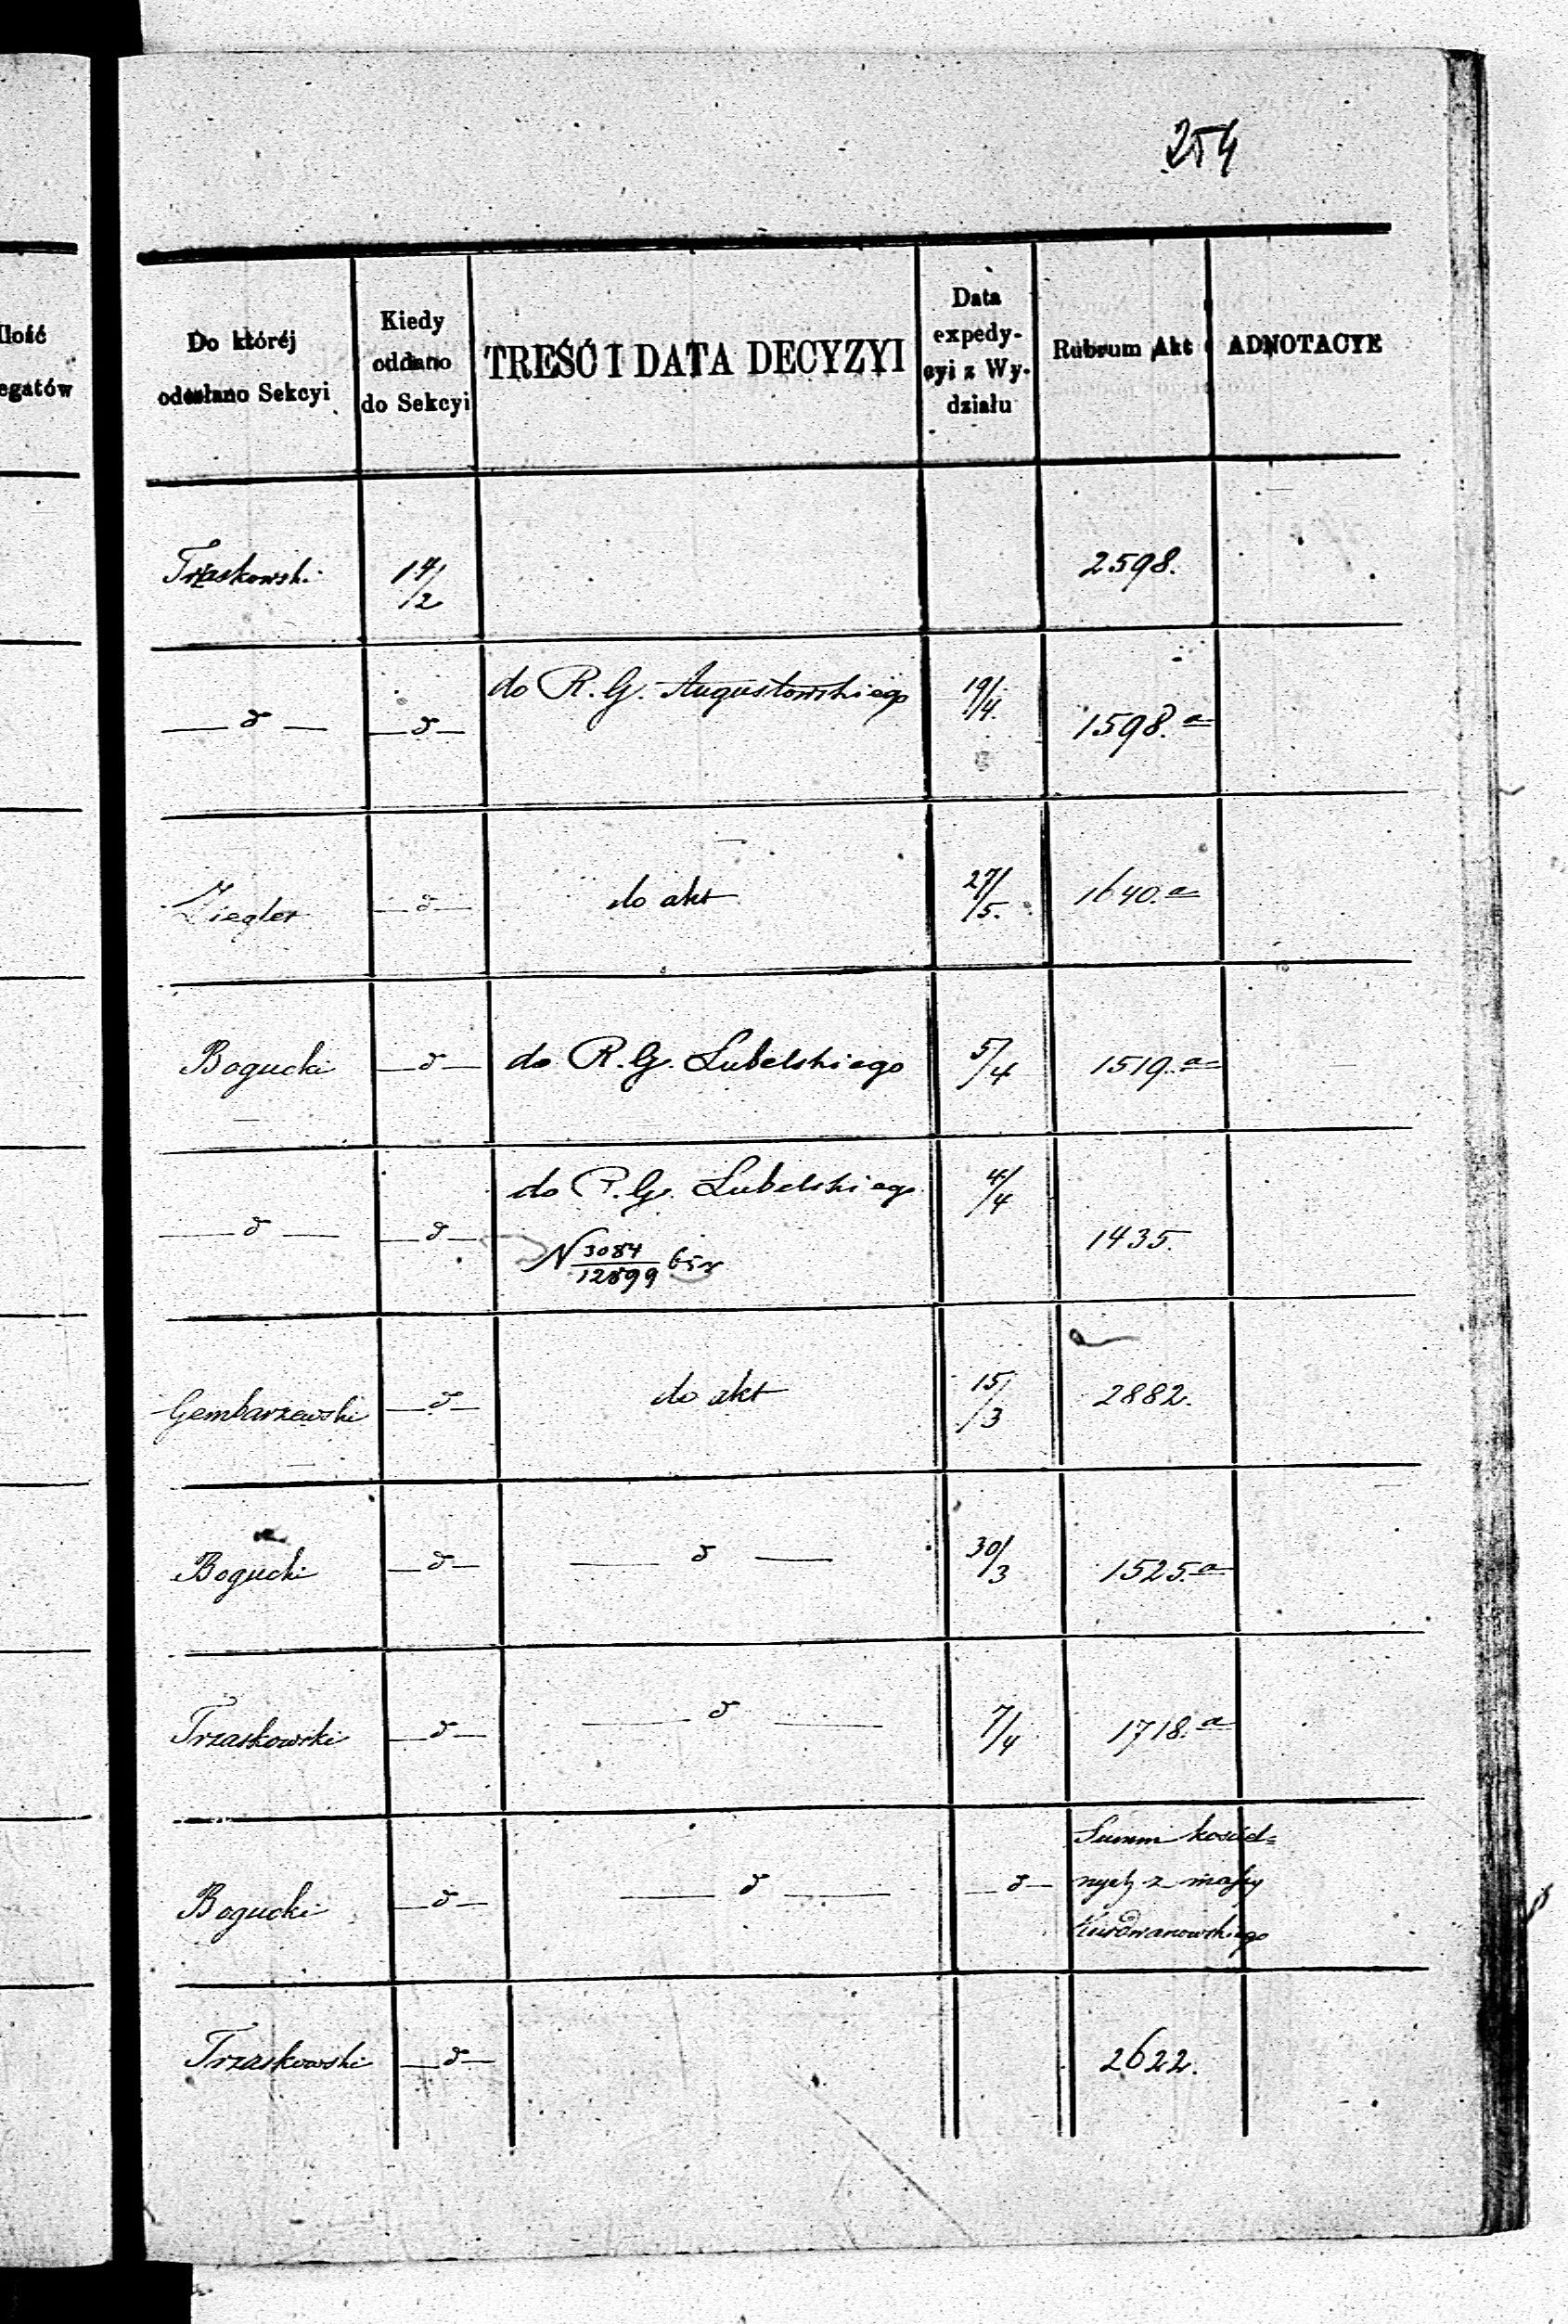 254
Ilość
egatów
Do któréj
odesłano Sekcyi
Kiedy
oddano
do Sekcyi
TREŚĆ I DATA DECYZYI
Data
expedy-
cyi z Wy-
działu
Rubrum Akt
ADNOTACYE
Trzaskowski 14/2 2598.
— d — — d — do R. G. Augustowskiego 19/4. 1598. a
Ziegler — d — do akt 27/5. 1640. a
Bogucki — d — do R. G. Lubelskiego 5/4 1519. a
— d — — d — do R. G. Lubelskiego 4/4 1435.
N 3084/12899
Gembarzewski — d — do akt 15/3 2882.
Bogucki — d — — d — 30/3 1525. a
Trzaskowski — d — — d — 7/4 1718. a
Bogucki — d — — d — — d — Summ kościel=
nych z massy
Kurdwanowskiego
Trzaskowski — d — 2622.